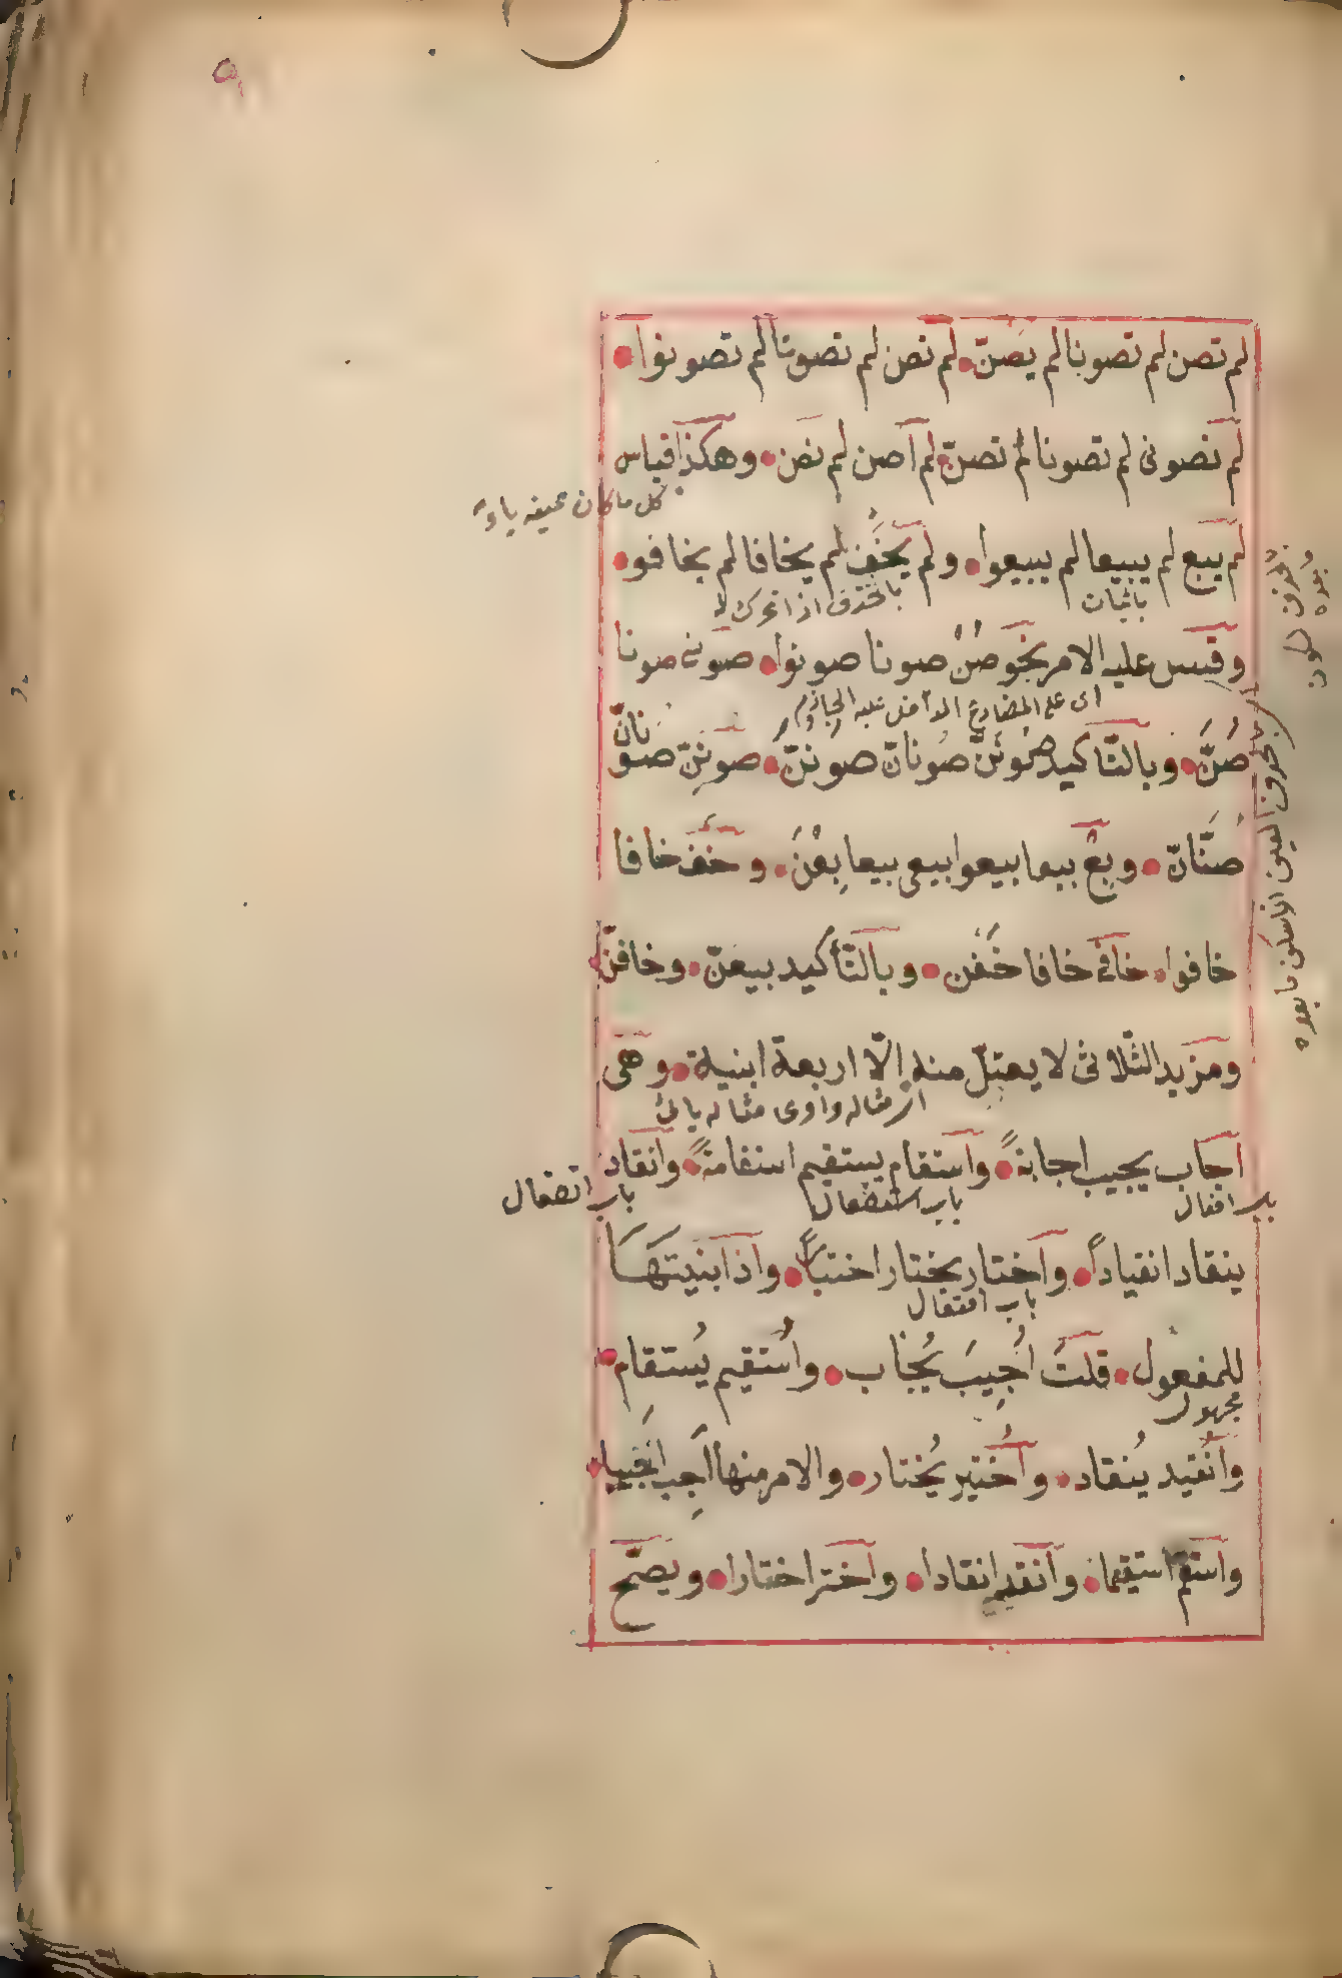 ٩
لم تصن لم تصونا لم يصنّ لم تصن لم تصونا لم تصونوا
لم تصونى لم تصونا لم تصنّ لم اصن لم نصن وهكذا قياس
كل ما كان عينه ياء
لم يبع لم يبيعا لم يبيعوا ولم يخف لم يخافا لم يخافو
باثبات
وقس عليه الامر نحو صن صونا صونوا صونى صونا
اى على المضارع الداخل عليه الجازم
صُنَّ وبالتّاكيد صُونَنَّ صونانّ صوننّ صوننّ صو
نانّ
صنّانّ وبِعْ بيعا بيعوا بيعى بيعا بِعْنَ وخَفْ خافا
خافوا خافى خافا خَفْن وبالتّأكيد بيعنّ وخافنّ
ومزيد الثّلاثى لا يعتلّ منه الّا اربعة ابنية وهى
اجاب يجيب اجابةً واستقام يستقيم استقامةً وانقاد
باب افعال
باب استفعال
باب انفعال
ينقاد انقياداً واختار يختار اختياراً واذا بنيتها
باب افتعال
للمفعول قلتَ اُجِيبَ يُجاب واُستقيم يُستقام
مجهول
واُنقيد يُنقاد واُختير يُختار والامر منها اَجِب اجيبا
واستقم استقيما وانقد انقادا واختر اختارا ويصحّ
بحذف العين اذا سكن ما بعده